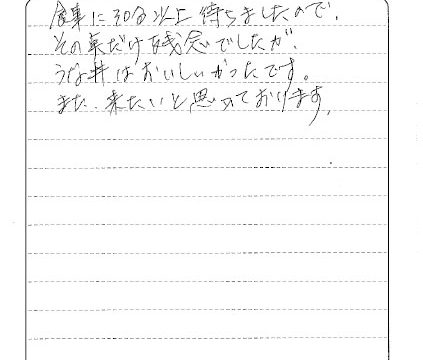 食事に30分以上待ちましたので、
その気だけ残念でしたが、
うな丼はおいしいかったです。
また、来たいと思っております。